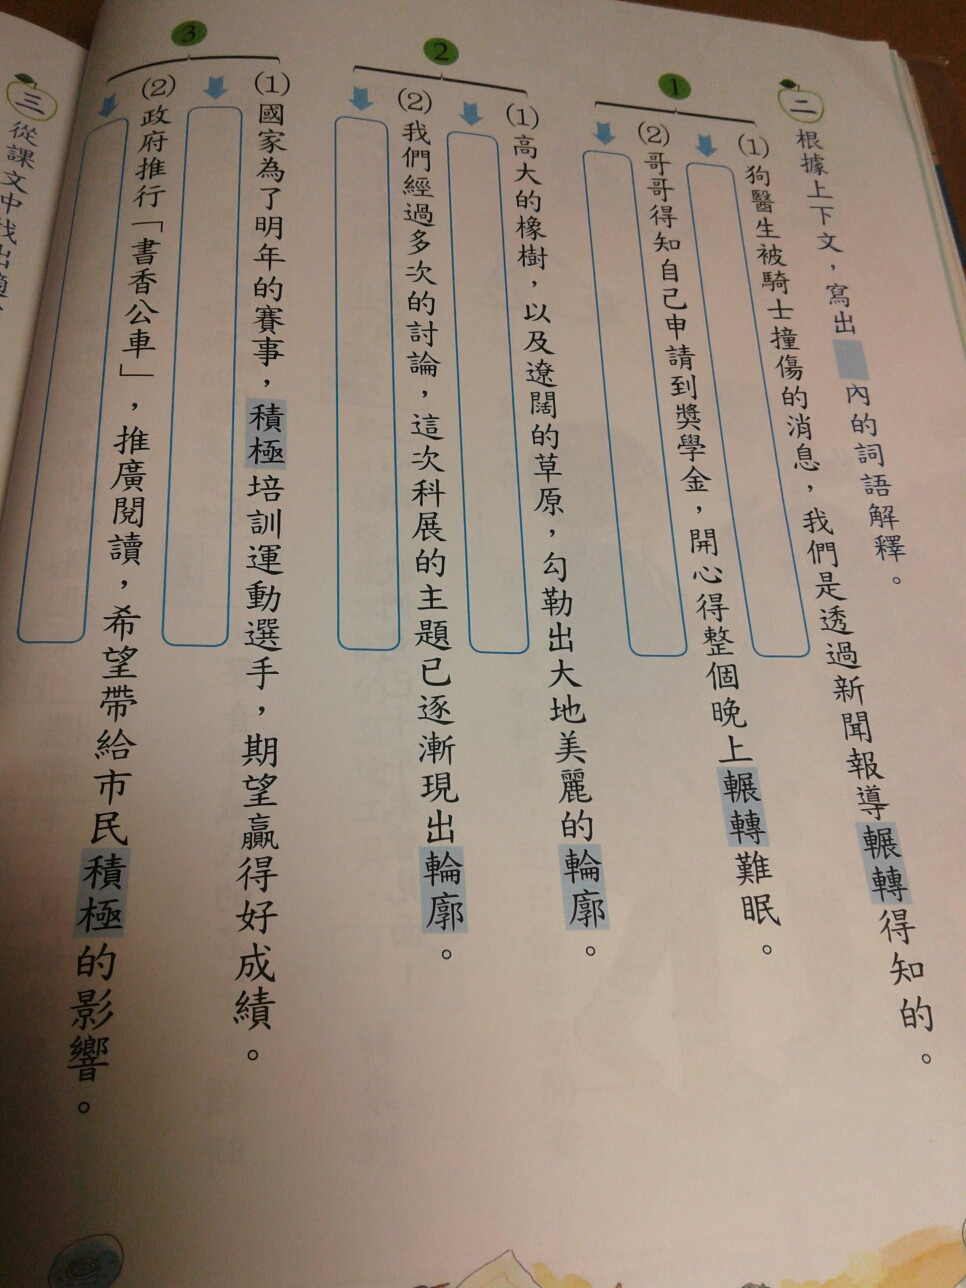 二 根據上下文，寫出　內的詞語解釋。
1
(1)狗醫生被騎士撞傷的消息，我們是透過新聞報導輾轉得知的。
(2)哥哥得知自己申請到獎學金，開心得整個晚上輾轉難眠。
2
(1)高大的橡樹，以及遼闊的草原，勾勒出大地美麗的輪廓。
(2)我們經過多次的討論，這次科展的主題已逐漸現出輪廓。
3
(1)國家為了明年的賽事，積極培訓運動選手，期望贏得好成績。
(2)政府推行「書香公車」，推廣閱讀，希望帶給市民積極的影響。
三 從課文中找出適